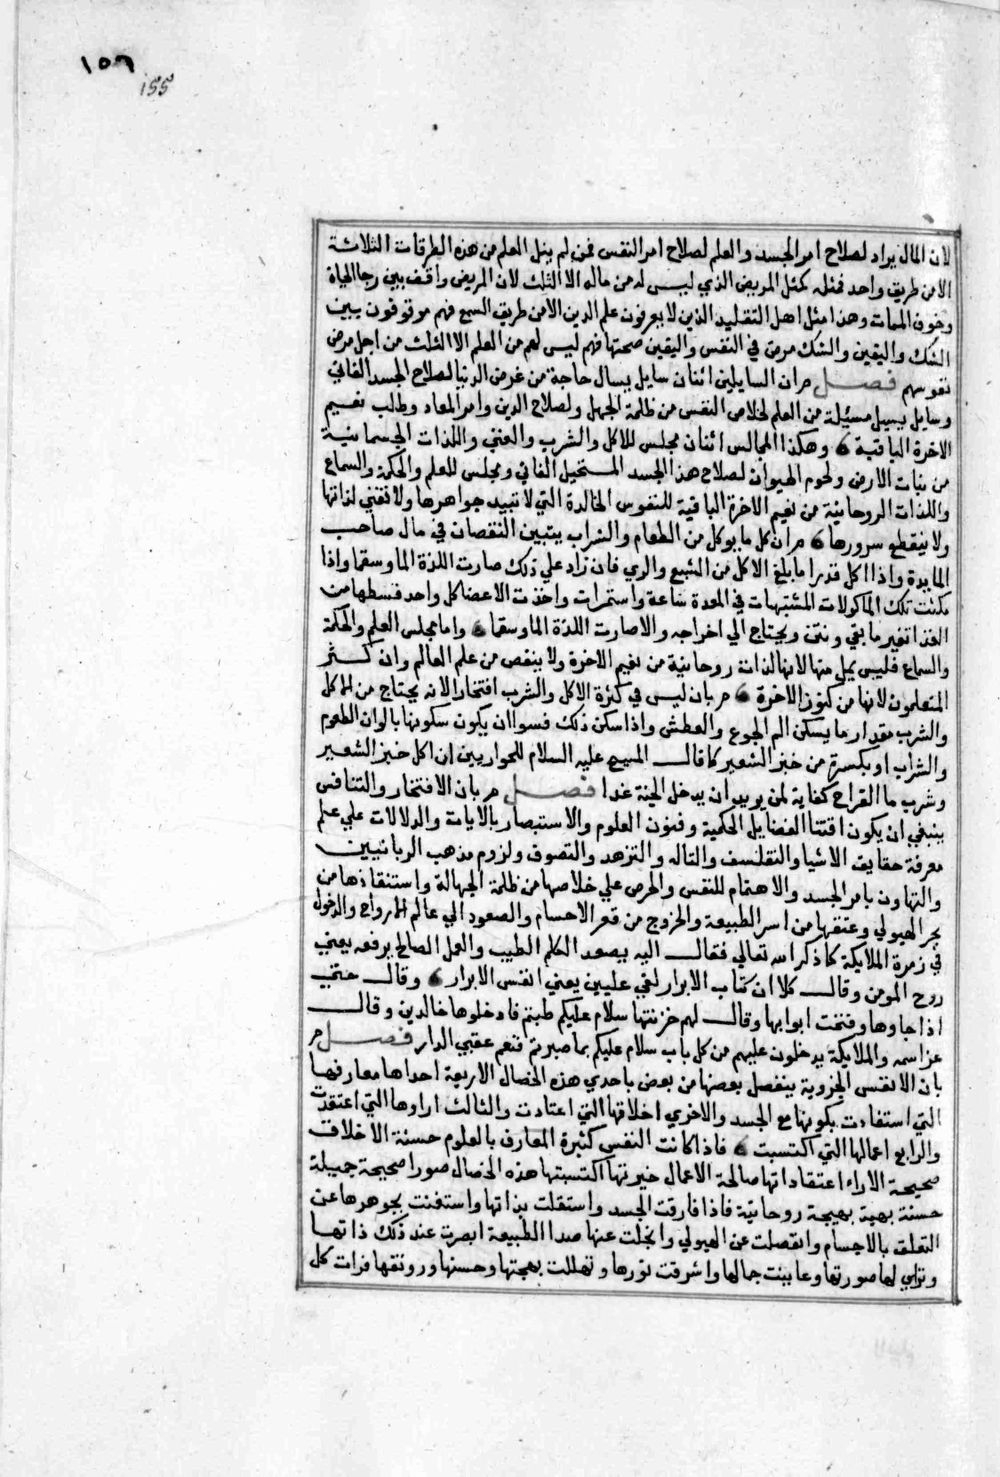 ١٥٦
155
لان المال يراد لصلاح امر الجسد والعلم لصلاح امر النفس فمن لم ينل العلم من هذه الطرقات الثلاثة
الا من طريق واحد فمثله كمثل المريض الذي ليس له من ماله الا الثلث لان المريض واقف بين رجا الحياة
وخوف الممات وهذا مثل اهل التقليد الذين لا يعرفون علم الدين الا من طريق السمع فهم موقوفون بين
الشك واليقين والشك مرض في النفس واليقين صحتها فهم ليس لهم من العلم الا الثلث من اجل مرض
نفوسهم فصل مر ان السايلين اثنان سايل يسال حاجة من عرض الدنيا لصلاح الجسد الفاني
وسايل يسيل مسيلة من العلم لخلاص النفس من ظلمة الجهل ولصلاح الدين وامر المعاد وطالب نعيم
الاخرة الباقية وهكذا المجالس اثنان مجلس للاكل والشرب والغني واللذات الجسمانية
من نبات الارض ولحوم الحيوان لصلاح هذا الجسد المستحيل الفاني ومجلس للعلم والحكمة والسماع
واللذات الروحانية من نعيم الاخرة الباقية للنفوس الخالدة التي لا تبيد جواهرها ولا تفني لذاتها
ولا ينقطع سرورها مر ان كل ما يوكل من الطعام والشراب يتبين النقصان في مال صاحب
المايدة واذا اكل قدر ما بلغ الاكل من الشبع والري فان زاد علي ذلك صارت اللذة الما وسقما واذا
مكثت تلك الماكولات المشتهيات في المعدة ساعة واستمرات واخذت الاعضا كل واحد قسطها من
الغذا تغير ما بقي ونتن ويحتاج الي اخراجه والا صارت اللذة الما وسقما واما مجلس العلم والحكمة
والسماع فليس يمل منها لانها لذات روحانية من نعيم الاخرة ولا ينقص من علم العالم وان كثر
المتعلمون لانها من كنوز الاخرة مر بان ليس في كثرة الاكل والشرب افتخار لانه يحتاج من الماكل
والشرب مقدار ما يسكن الم الجوع والعطش واذا سكن ذلك فسوا ان يكون سكونها بالوان الطعوم
والشراب او بكسرة من خبز الشعير كما قال المسيح عليه السلام للحواريين ان اكل خبز الشعير
وشرب ما القراح كفاية لمن يريد ان يدخل الجنة غدا فصل مر بان الافتخار والتنافس
ينبغي ان يكون اقتنا الفضايل الحكمية وفنون العلوم والاستبصار بالايات والدلالات علي علم
معرفة حقايق الاشيا والتفلسف والتاله والتزهد والتصوف ولزوم مذهب الربانيين
والتهاون بامر الجسد والاهتمام للنفس والحرص علي خلاصها من ظلمة الجهالة واستنقاذها من
بحر الهيولي وعتقها من اسر الطبيعة والخروج من قعر الاجسام والصعود الي عالم الارواح والدخول
في زمرة الملايكة كما ذكر الله تعالي فقال اليه يصعد الكلم الطيب والعمل الصالح يرفعه يعني
روح المومن وقال كلا ان كتاب الابرار لفي عليين يعني انفس الابرار وقال حتي
اذا جاوها وفتحت ابوابها وقال لهم خزنتها سلام عليكم طبتم فادخلوها خالدين وقال
عز اسمه والملايكة يدخلون عليهم من كل باب سلام عليكم بما صبرتم فنعم عقبي الدار فصل مر
بان الانفس الجزوية ينفصل بعضها من بعض باحدي هذه الخصال الاربعة احداها معارفها
التي استفادت بكونها مع الجسد والاخري اخلاقها التي اعتادت والثالث اراوها التي اعتقدت
والرابع اعمالها التي اكتسبت فاذا كانت النفس كثيرة المعارف بالعلوم حسنة الاخلاق
صحيحة الاراء اعتقاداتها صالحة الاعمال خيرتها اكتسبتها هذه الخصال صورا صحيحة جميلة
حسنة بهية بهيجة روحانية فاذا فارقت الجسد واستقلت بذاتها واستغنت بجوهرها عن
التعلق بالاجسام وانفصلت عن الهيولي وانجلت عنها صدا الطبيعة ابصرت عند ذلك ذاتها
وتراي لها صورتها وعاينت جمالها واشرقت نورها وتهللت بهجتها وحسنها ورونقها فرات كل